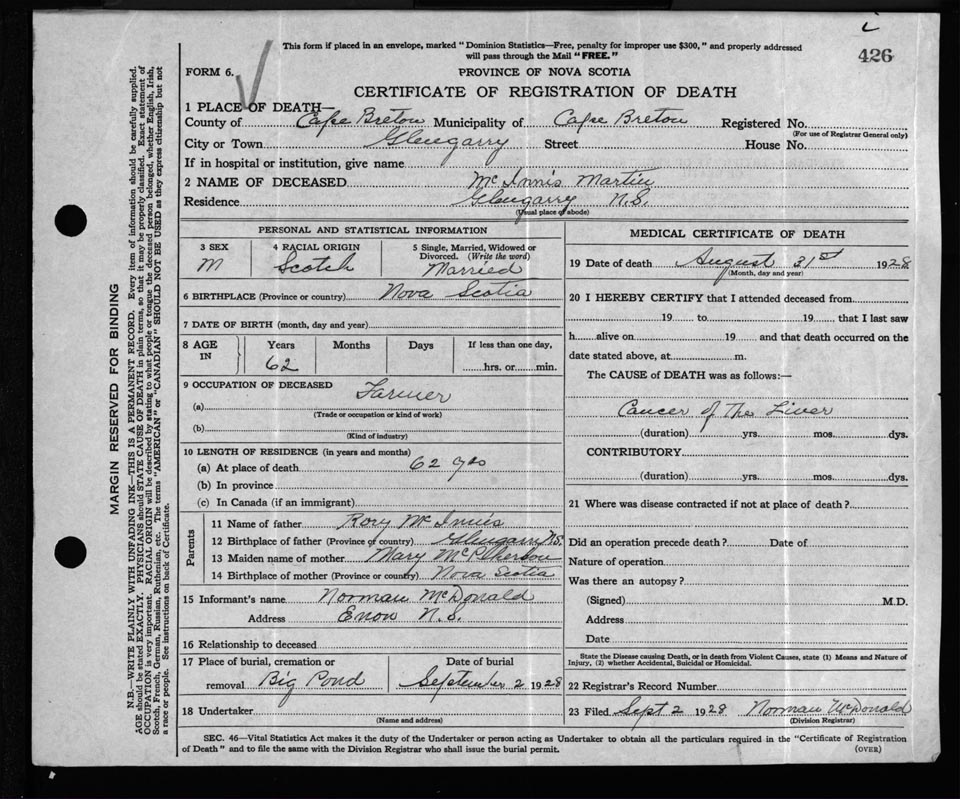 This form if placed in an envelope, marked "Dominion Statistics—Free, penalty for improper use $300," and properly addressed
will pass through the Mail "FREE."
426
FORM 6.
PROVINCE OF NOVA SCOTIA
CERTIFICATE OF REGISTRATION OF DEATH
1 PLACE OF DEATH—
County of Cape Breton Municipality of Cape Breton Registered No.
(For use of Registrar General only)
City or Town Glengarry Street House No.
If in hospital or institution, give name
2 NAME OF DECEASED McInnis Martin
Residence Glengarry N.S.
(Usual place of abode)
PERSONAL AND STATISTICAL INFORMATION
3 SEX 4 RACIAL ORIGIN 5 Single, Married, Widowed or
Divorced. (Write the word)
M Scotch Married
6 BIRTHPLACE (Province or country) Nova Scotia
7 DATE OF BIRTH (month, day and year)
8 AGE IN Years Months Days If less than one day,
62 hrs. or min.
9 OCCUPATION OF DECEASED
(a) Farmer
(Trade or occupation or kind of work)
(b)
(Kind of industry)
10 LENGTH OF RESIDENCE (in years and months)
(a) At place of death 62 yrs
(b) In province
(c) In Canada (if an immigrant)
Parents
11 Name of father Rory McInnis
12 Birthplace of father (Province or country) Glengarry N.S.
13 Maiden name of mother Mary McPherson
14 Birthplace of mother (Province or country) Nova Scotia
15 Informant's name Norman McDonald
Address Enon N.S.
16 Relationship to deceased
17 Place of burial, cremation or Date of burial
removal Big Pond September 2 1928
18 Undertaker
(Name and address)
MEDICAL CERTIFICATE OF DEATH
19 Date of death August 31st 1928
(Month, day and year)
20 I HEREBY CERTIFY that I attended deceased from
19 to 19 that I last saw
h alive on 19 and that death occurred on the
date stated above, at m.
The CAUSE of DEATH was as follows:—
Cancer of The Liver
(duration) yrs. mos. dys.
CONTRIBUTORY
(duration) yrs. mos. dys.
21 Where was disease contracted if not at place of death?
Did an operation precede death? Date of
Nature of operation
Was there an autopsy?
(Signed) M.D.
Address
Date
State the Disease causing Death, or in death from Violent Causes, state (1) Means and Nature of
Injury, (2) whether Accidental, Suicidal or Homicidal.
22 Registrar's Record Number
23 Filed Sept 2 1928 Norman McDonald
(Division Registrar)
SEC. 46—Vital Statistics Act makes it the duty of the Undertaker or person acting as Undertaker to obtain all the particulars required in the "Certificate of Registration
of Death" and to file the same with the Division Registrar who shall issue the burial permit.
(OVER)
MARGIN RESERVED FOR BINDING
N.B.—WRITE PLAINLY WITH UNFADING INK—THIS IS A PERMANENT RECORD. Every item of information should be carefully supplied.
AGE should be stated EXACTLY. PHYSICIANS should STATE CAUSE OF DEATH in plain terms, so that it may be properly classified. Exact statement of
OCCUPATION is very important. RACIAL ORIGIN will be described by stating to what people or tongue the deceased person belonged, whether English, Irish,
Scotch, French, German, Russian, Ruthenian, etc. The terms "AMERICAN" or "CANADIAN" SHOULD NOT BE USED as they express citizenship but not
a race or people. See instructions on back of Certificate.